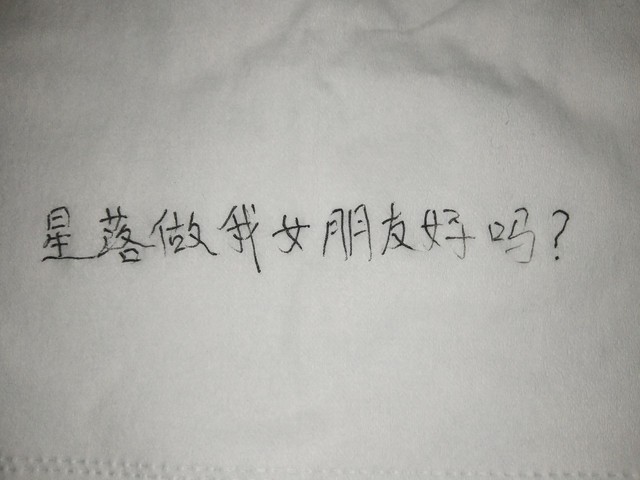 星落做我女朋友好吗?